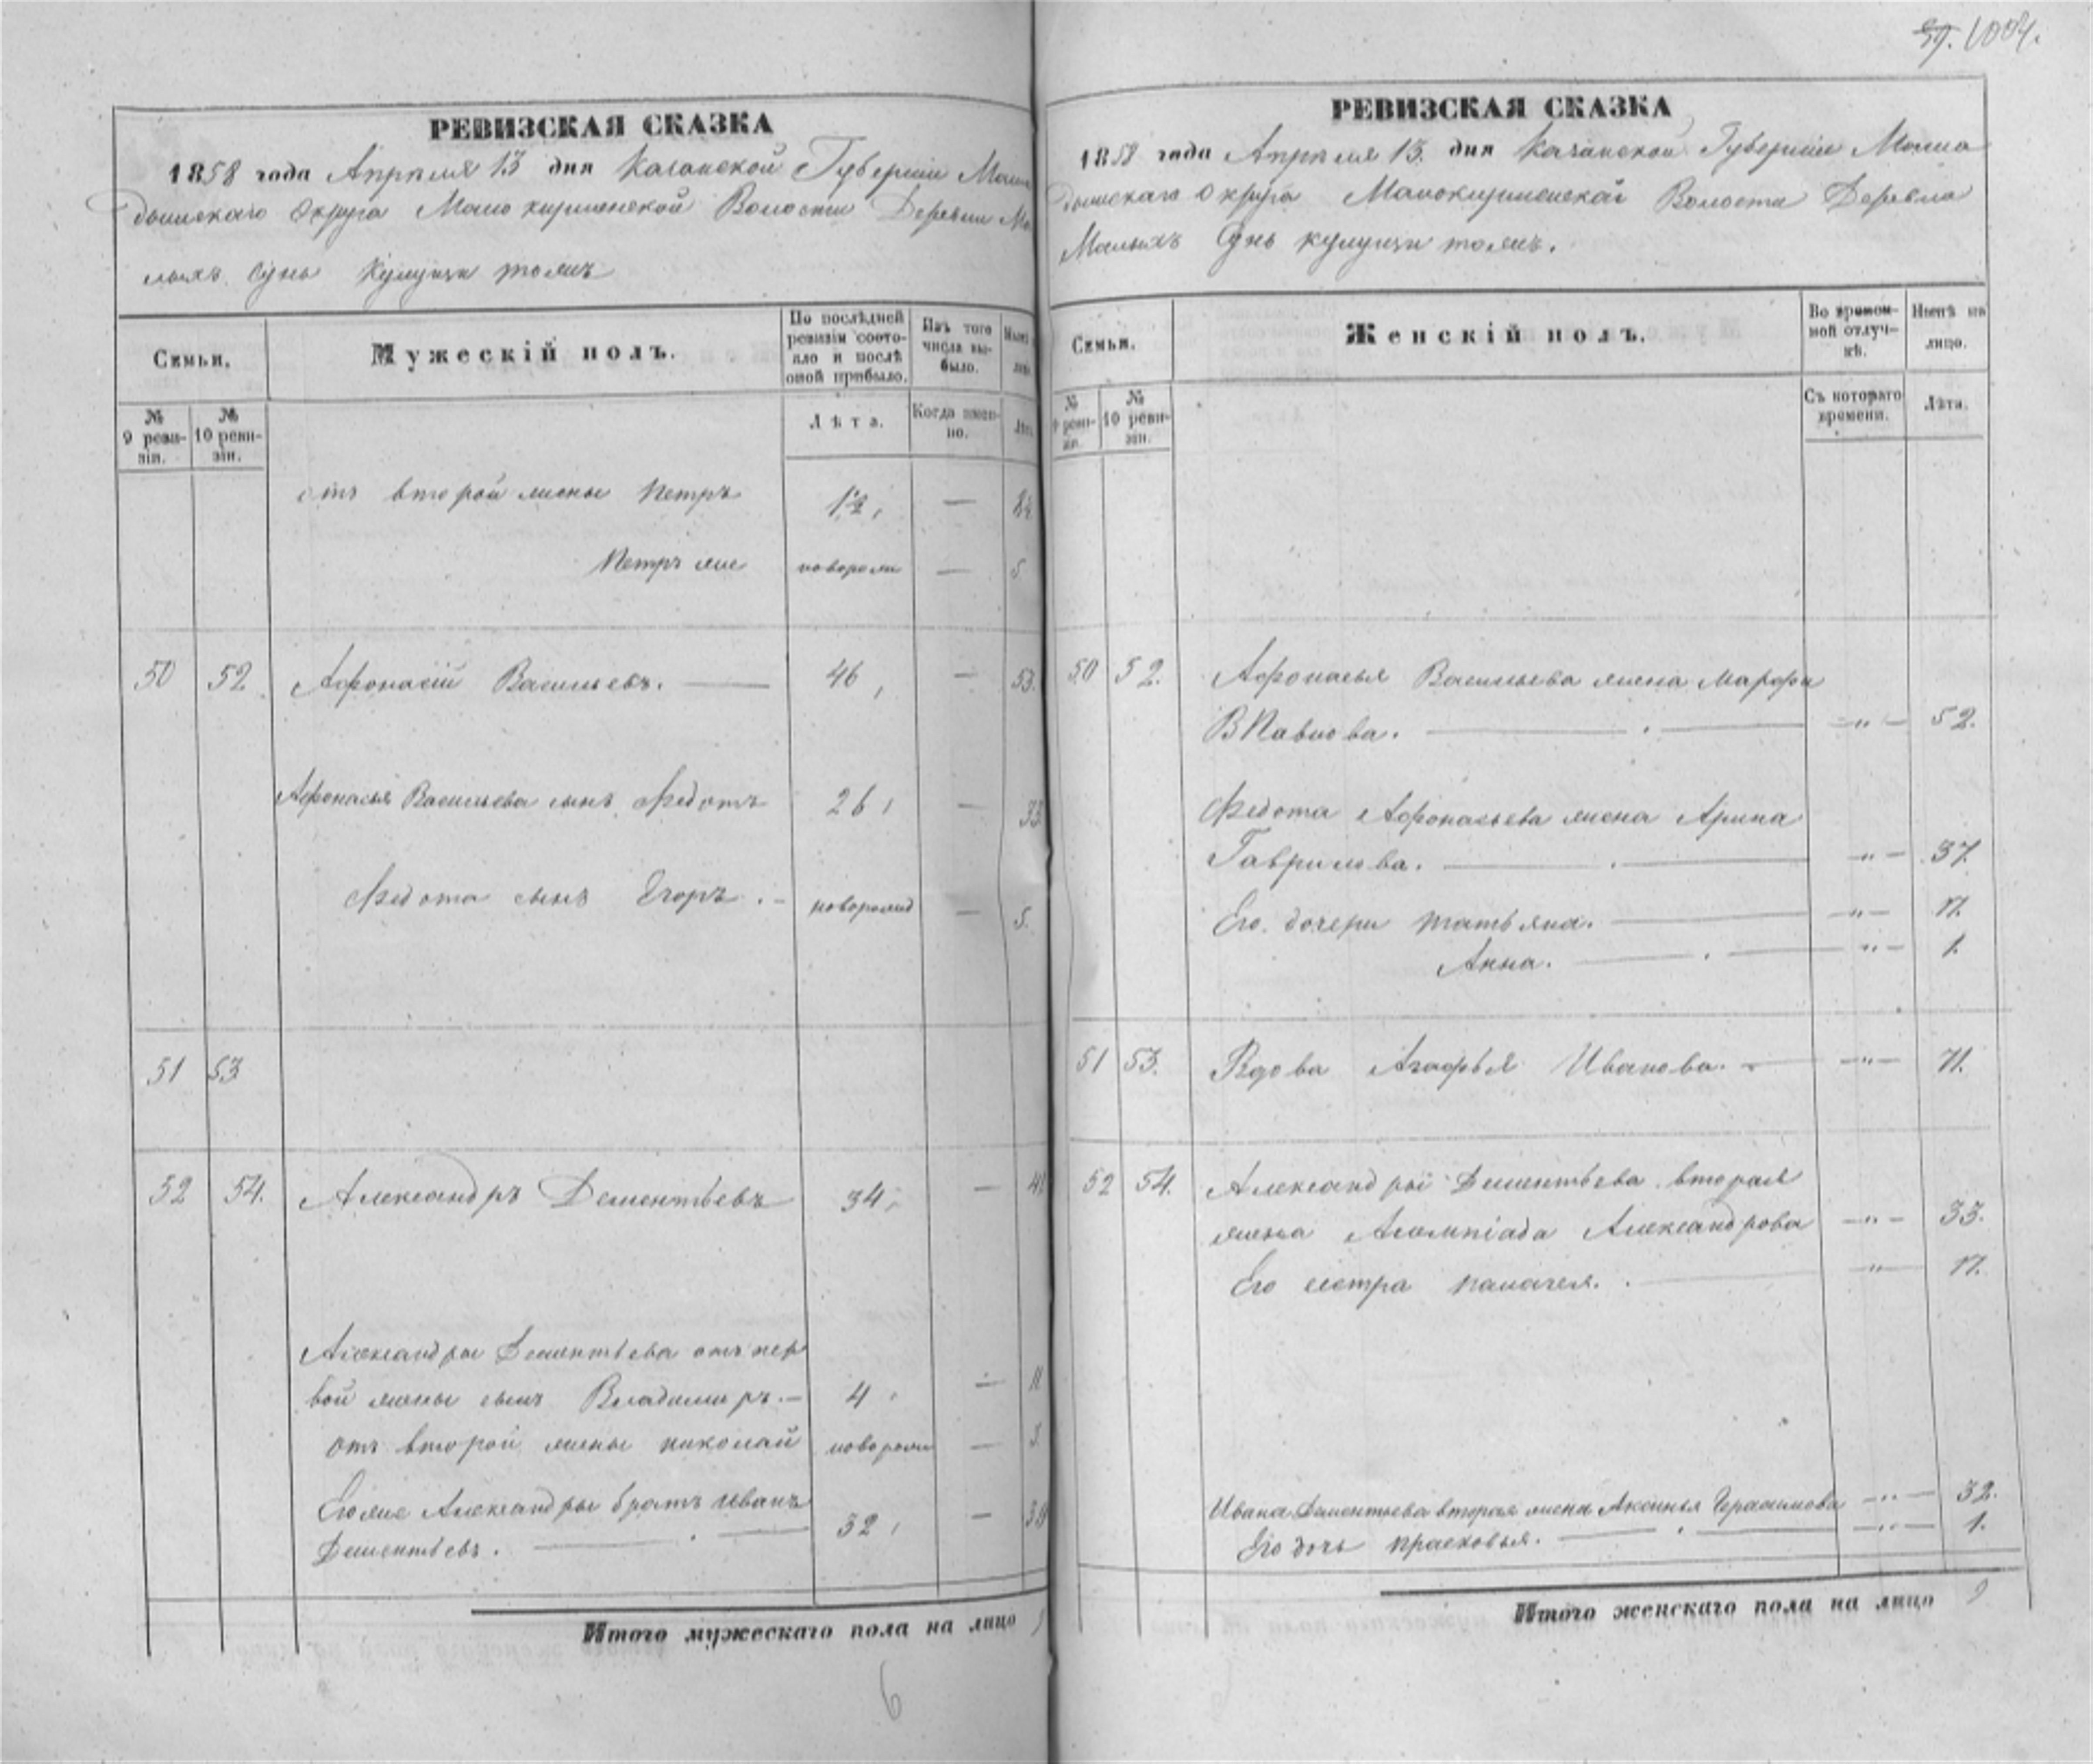 57. 1004.
РЕВИЗСКАЯ СКАЗКА
1858 года Апреля 13 дня Казанской Губернiи Мама
дышскаго Округа Малокирменской Волости Деревни Ма
лыхъ Сунь
РЕВИЗСКАЯ СКАЗКА
1858 года Апреля 13. дня Казанской Губернiи Мама
дышскаго Округа Малокирменской Волости Деревни
Малыхъ Сунь
Семьи.
Мужескій полъ.
По послѣдней ревизіи состояло и послѣ оной прибыло.
Изъ того числа выбыло.
№ 9 ревизіи.
№ 10 ревизіи.
Лѣта.
Когда именно.
отъ второй жены Петръ 12, —
Петръ же новорожд — 5
50 52. Афонасій Васильевъ. — 46, — 53.
Афонасья Васильева сынъ Федотъ 26, — 33
Федота сынъ Егоръ. - новорожд — 5.
51 53
52 54. Александръ Дементьевъ 34, — 41
Александры Дементьева отъ пер
вой жены сынъ Владимиръ. — 4, — 11
отъ второй жены николай новорожд —
Егоже Александры братъ иванъ
Дементьевъ. — 32, — 39
Итого мужескаго пола на лицо
6
Семьи.
Женскій полъ.
Во временной отлучкѣ.
Нынѣ на лицо.
№ 9 ревизіи.
№ 10 ревизіи.
Съ котораго времени.
Лѣта.
50 52. Афонасья Васильева жена Марфа
Павлова. — „ — 52.
Федота Афонасьева жена Арина
Гаврилова. — „ — 37.
Его дочери татьяна. — „ — 17.
Анна. — „ — 1.
51 53. Вдова Агафья Иванова. — „ — 71.
52 54. Александры Дементьева вторая
жена Алимпіада Александрова — „ — 33.
Его сестра палагея. — „ — 17.
Ивана Дементьева вторая жена Аксинья Герасимова — „ — 32.
Его дочь прасковья. — „ — 1.
Итого женскаго пола на лицо 9